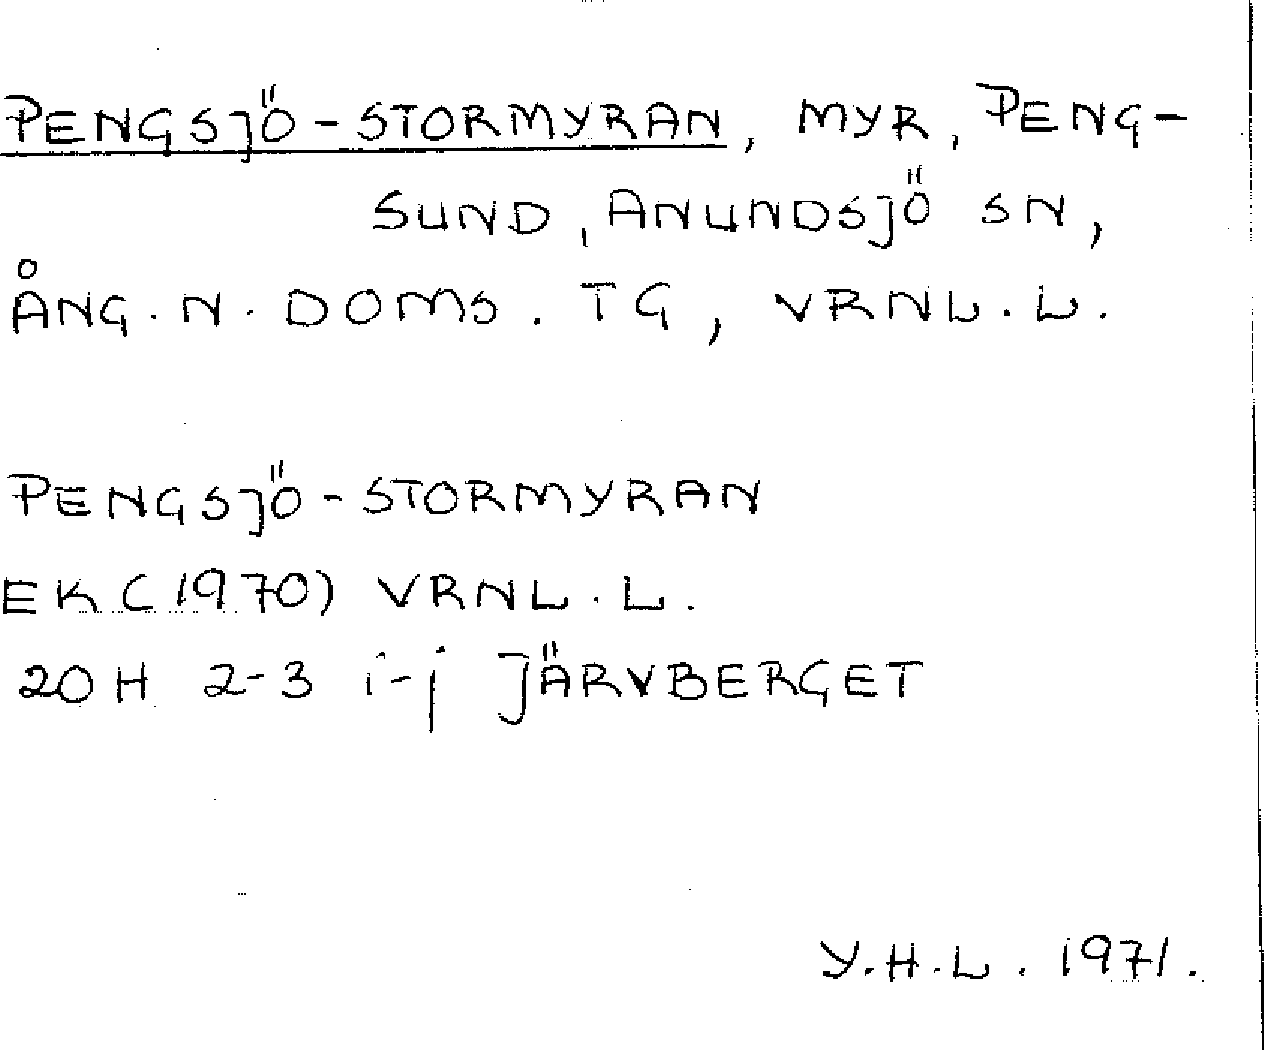 PENGSJÖ-STORMYRAN, MYR, PENG-
SUND, ANUNDSJÖ SN,
ÅNG. N. DOMS. TG, VRNL. L.
PENGSJÖ-STORMYRAN
EK (1970) VRNL. L.
20 H 2-3 i-j JÄRVBERGET
Y.H.L. 1971.